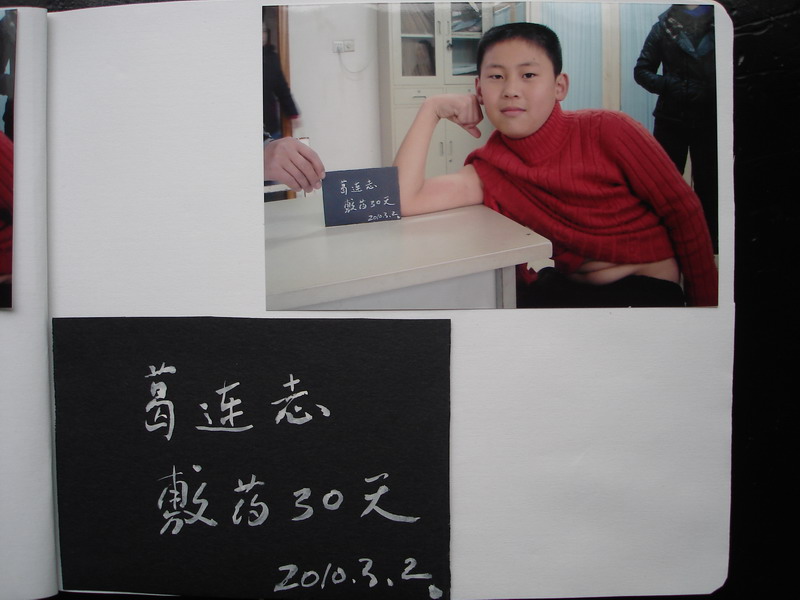 葛连志
敷药30天
2010.3.2.
葛连志
敷药30天
2010.3.2.